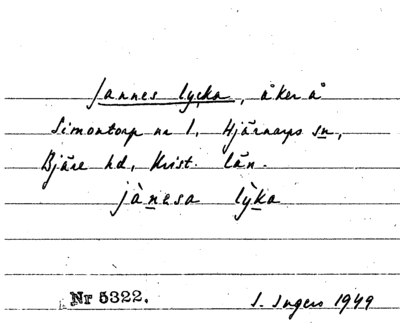 Jannes lycka, åker å
Simontorp nr 1, Hjärnarps sn,
Bjäre hd, Krist. län.
jànesa lỳka
Nr 5322.
I. Ingers 1949